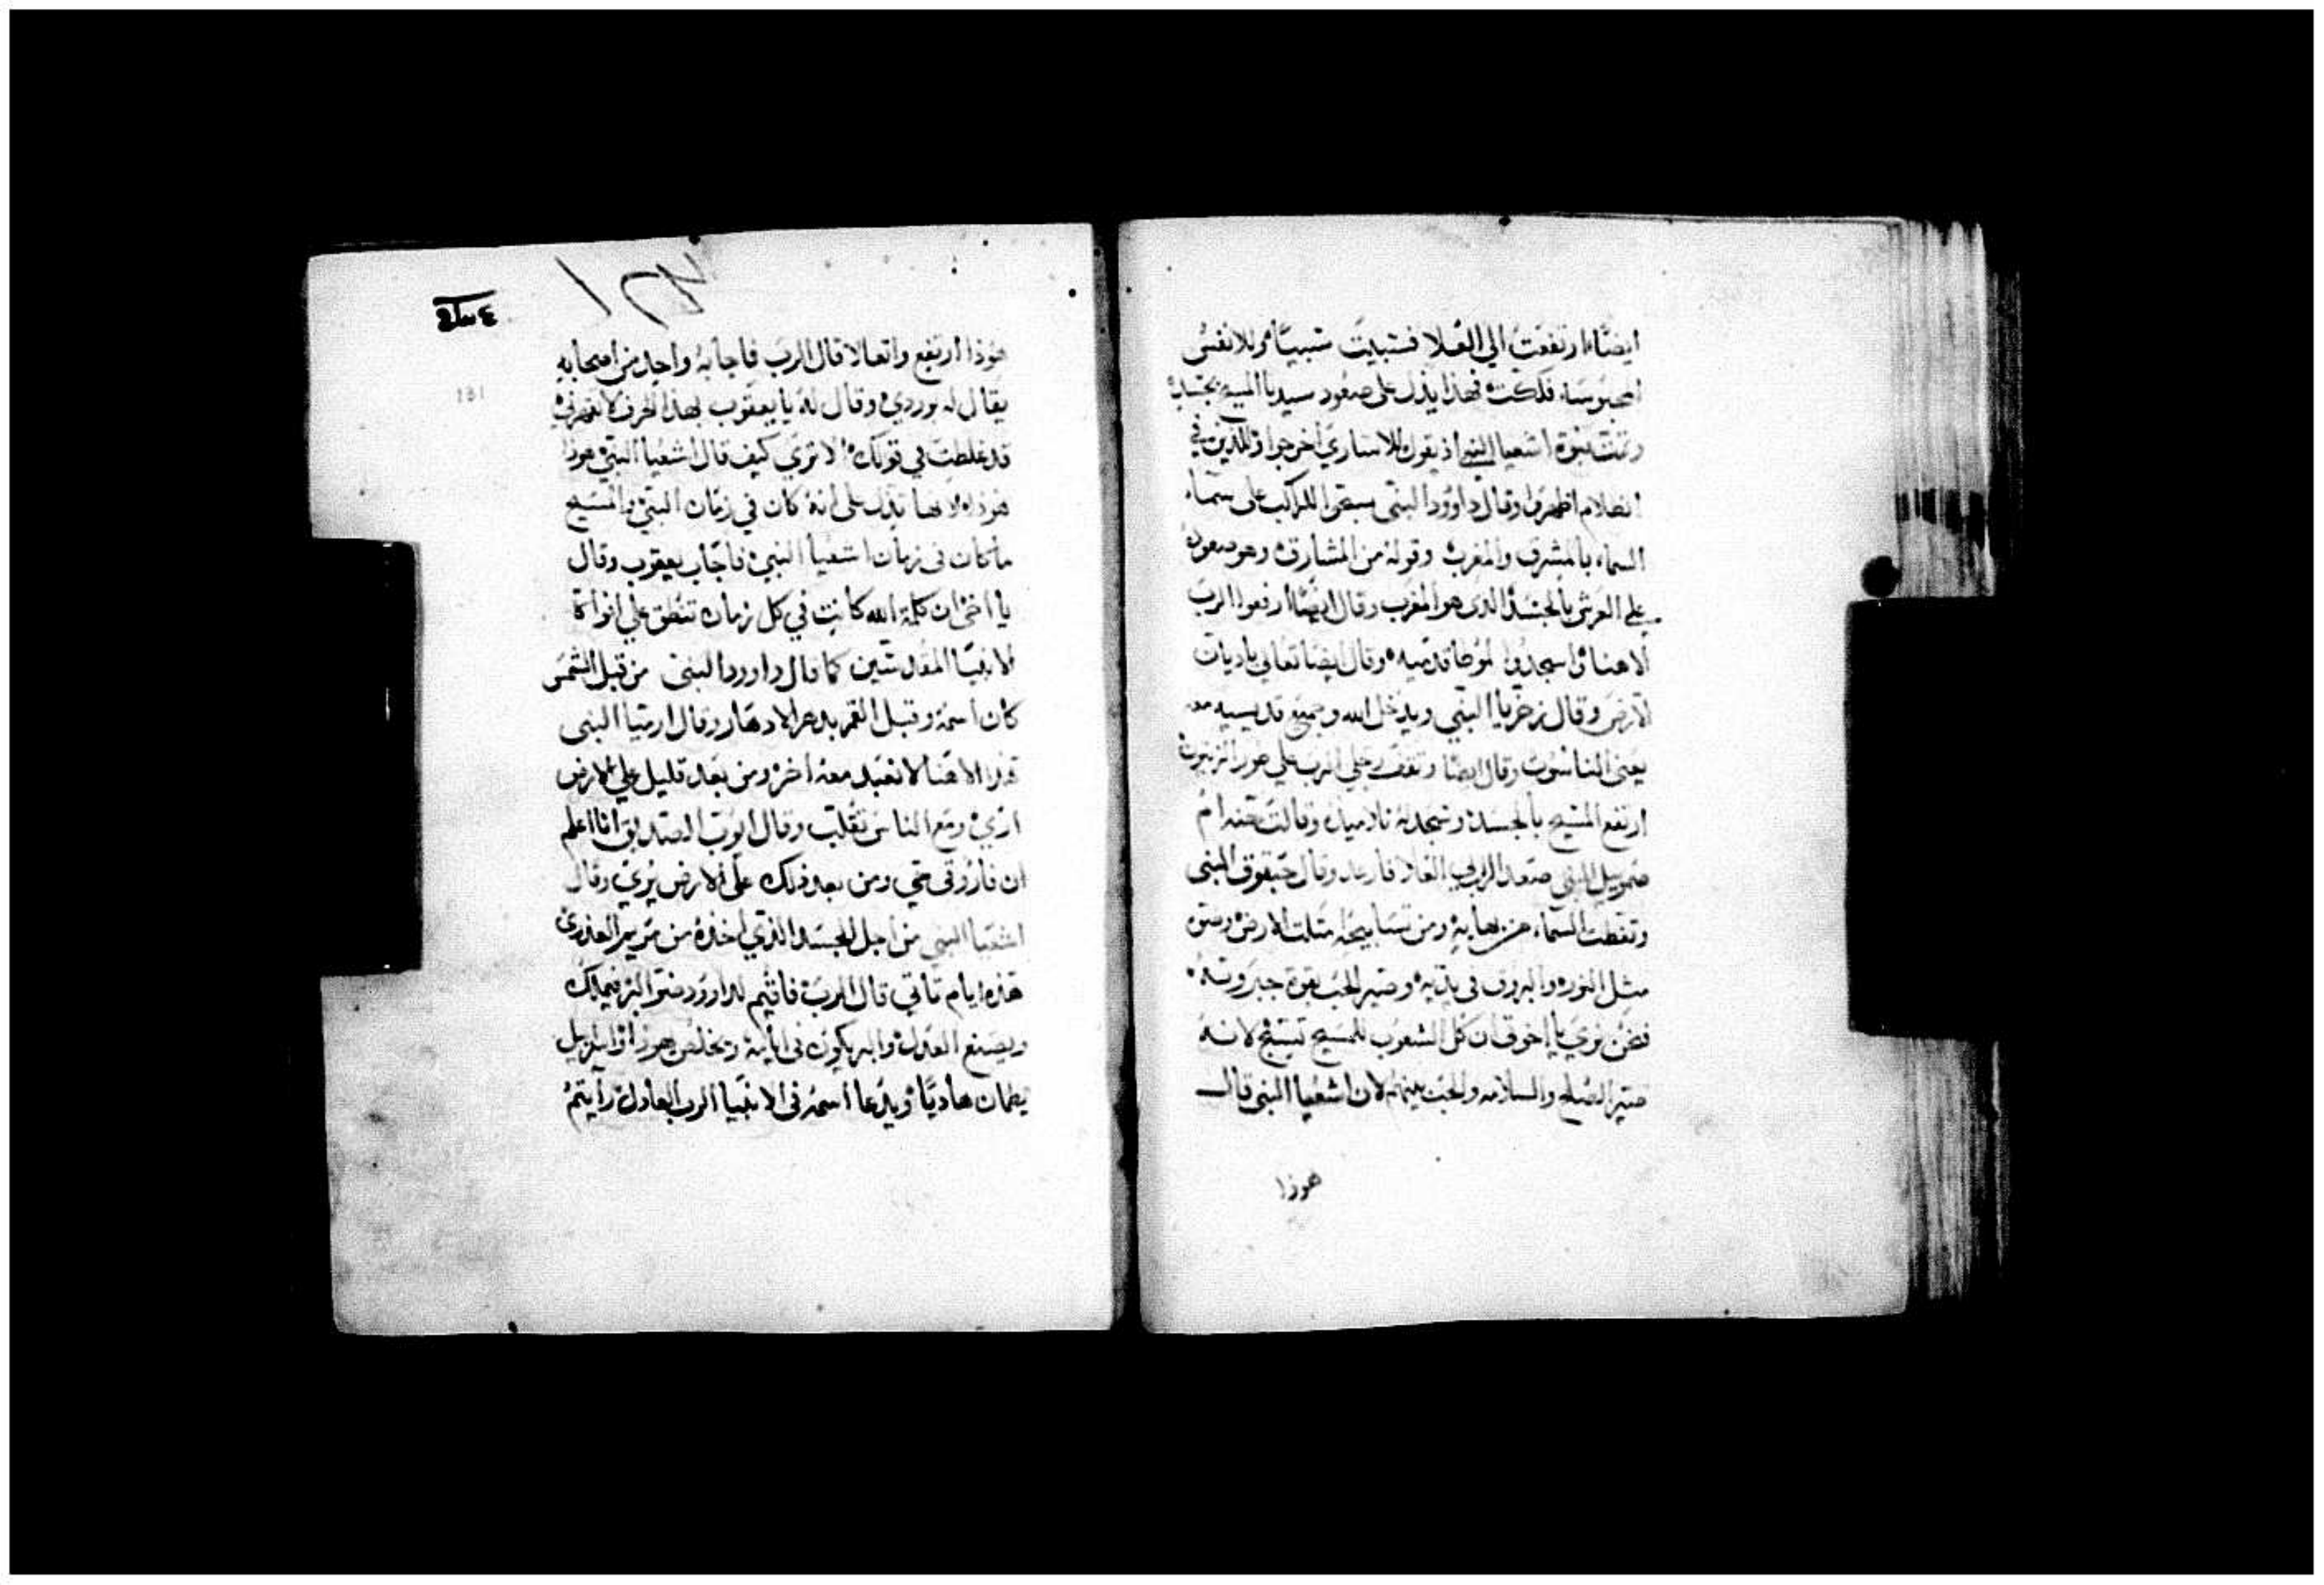 ايضًا ارتفعت الي العلا فسبيت سبيًا وللانفس
المحبوسه فككت فهذا يدل علي صعود سيدنا المسيح بجسده
وتمت نبوة اشعيا النبي اذ يقول للاساري اخرجوا وللذين في
الظلام اظهروا وقال داوود النبي سبحوا للراكب علي سماء
السماء بالمشرق والمغرب وقوله من المشارق وهو صعوده
علي العرش بالجسد الذي هو المغرب وقال ايضًا ارفعوا الرب
الاهنا واسجدوا لموطا قدميه وقال ايضا تعالي ياديان
الارض وقال زخريا النبي ويدخل الله وجميع قديسيه معه
يعني الناسوت وقال ايضا وتقف رجلي الرب علي طور الزيتون
ارتفع المسيح بالجسد وسجد له تلاميذه وقالت حنه ام
صمويل النبي صعد الرب الي العلا فارعد وقال حبقوق النبي
وتغطت السماء من بهايه ومن تسابيحه امتلت الارض وضوه
مثل النور والبروق في يديه وصير الحب بقوة جبروته
فنحن نري يا اخوة ان كل الشعوب للمسيح تسبح لانه
صير الصلح والسلامه والحب بينهم لان اشعيا النبي قال
هوذا
١٣١
131
هوذا ارتفع واتعالا قال الرب فاجابه واحد من اصحابه
يقال له بوردي وقال له يا يعقوب بهذا الحرف لا تقهرني
قد غلطت في قولك الا تري كيف قال اشعيا النبي هوذا
هوذا لانها تدل علي انه كان في زمان النبي والمسيح
ما كان في زمان اشعيا النبي فاجاب يعقوب وقال
يا اخي ان كلمة الله كانت في كل زمان تنطق علي افواه
الانبيا المقدسين كما قال داوود النبي من قبل الشمس
كان اسمه وقبل القمر بدهر الادهار وقال ارميا النبي
هذا الاهنا لا نعبد معه اخر ومن بعد قليل علي الارض
اري ومع الناس تقلب وقال ايوب الصديق انا اعلم
ان فاروقي حي ومن بعد ذلك علي الارض يري وقال
اشعيا النبي من اجل الجسد الذي اخذه من مريم العذري
هذه ايام تاتي قال الرب فاقيم لداوود ضو البر فيملك
ويصنع العدل والبر يكون في ايامه ويخلص هوذا واسرايل
يظمان هاديًا ويدعا اسمه في الانبيا الرب العادل رايتم